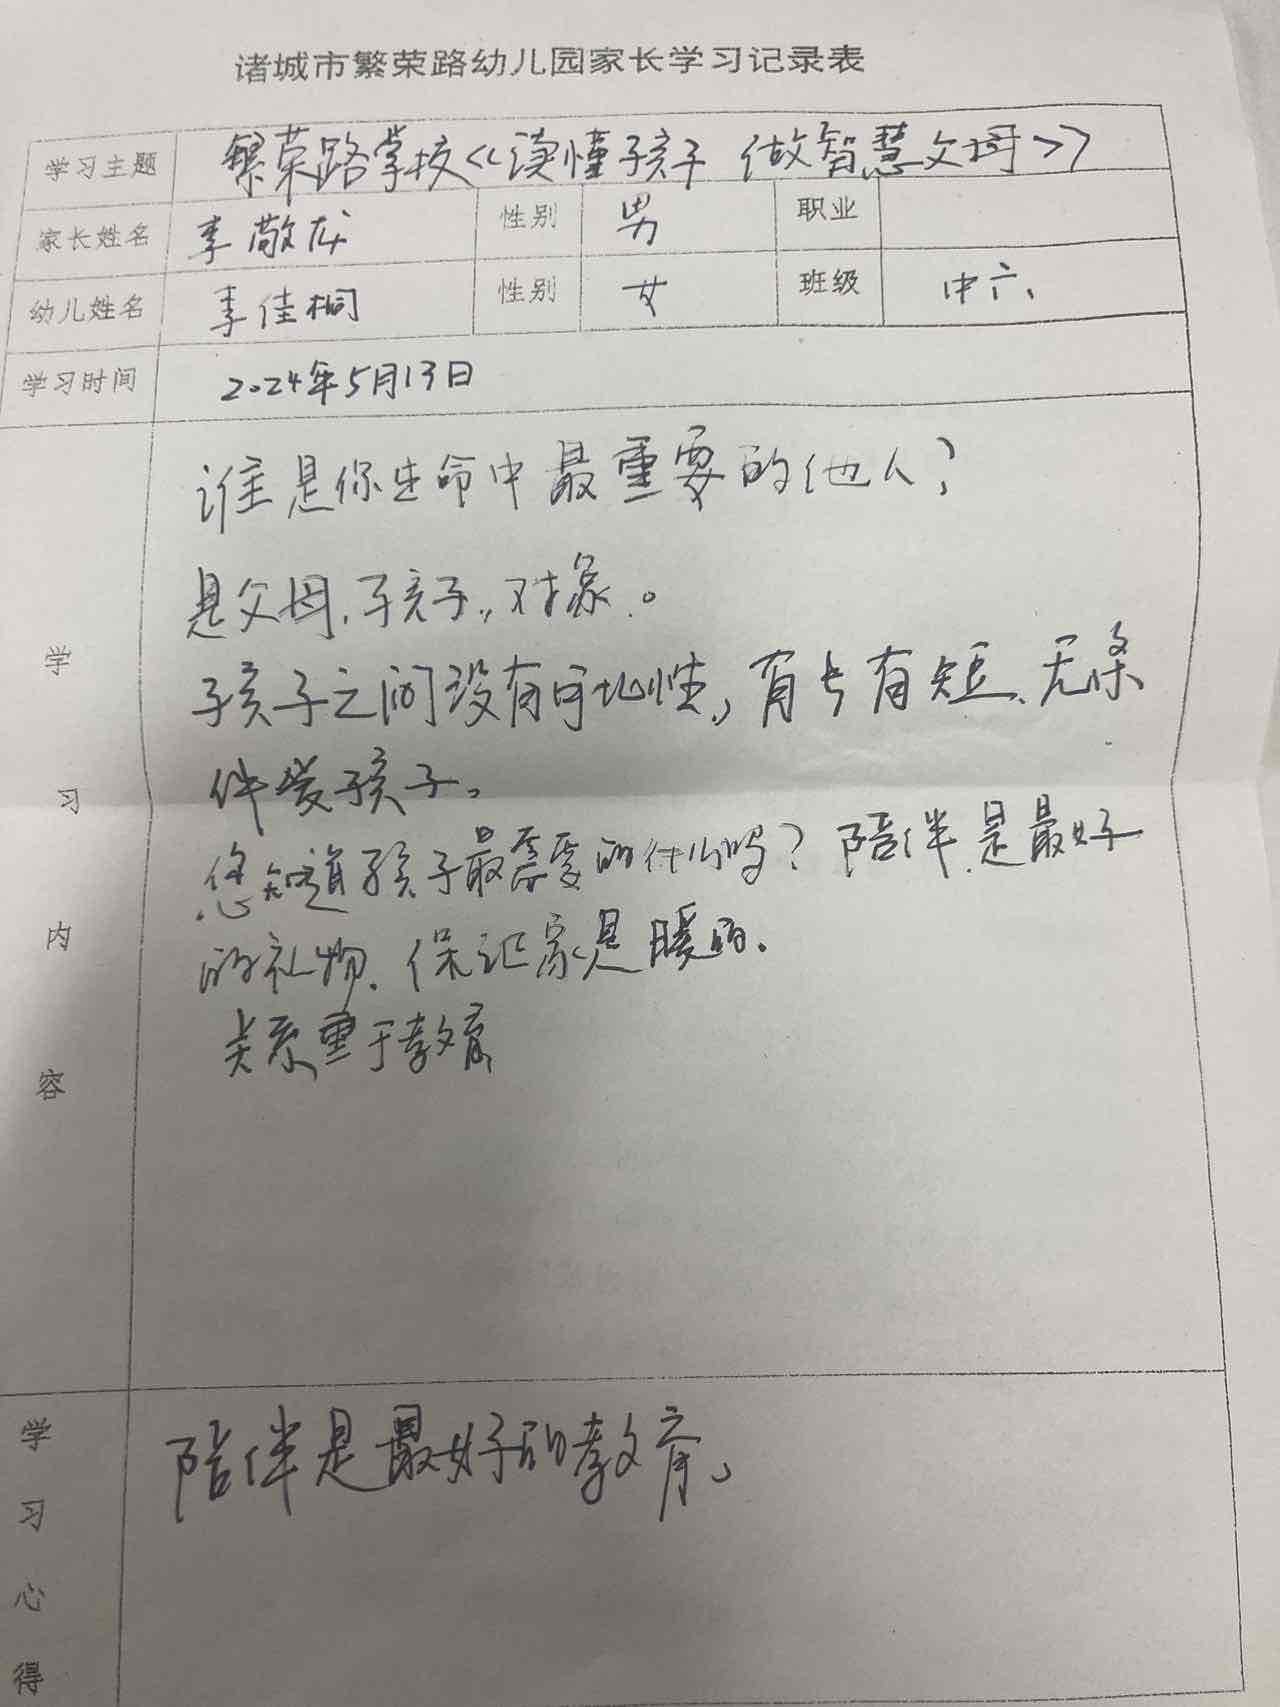 诸城市繁荣路幼儿园家长学习记录表
学习主题 繁荣路学校《读懂孩子 做智慧父母》
家长姓名 李敬龙 性别 男 职业
幼儿姓名 李佳桐 性别 女 班级 中六
学习时间 2024年5月13日
学习内容
谁是你生命中最重要的他人?
是父母、孩子、对象。
孩子之间没有可比性,有长有短、无条
件爱孩子。
您知道孩子最需要的什么吗?陪伴是最好
的礼物、保证家是暖的.
关系重于教育
学习心得
陪伴是最好的教育、